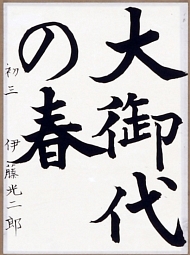 大御代
の春
初三 伊藤光二郎